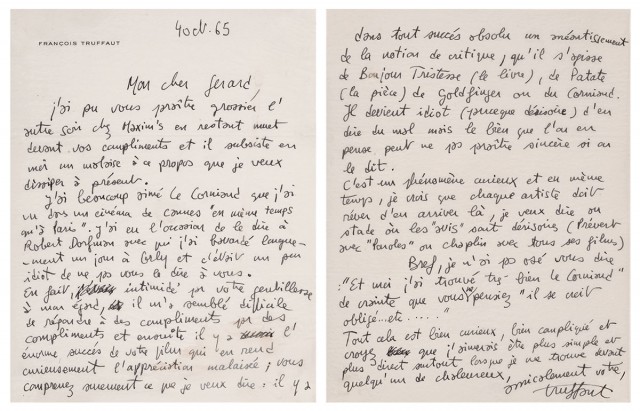 4 oct. 65
FRANÇOIS TRUFFAUT
Mon cher Gerard,
j'ai pu vous paraître grossier l'
autre soir chez Maxim's en restant muet
devant vos compliments et il subsiste en
moi un malaise à ce propos que je veux
dissiper à présent.
J'ai beaucoup aimé Le Corniaud que j'ai
vu dans un cinéma de Cannes "en même temps
qu'à Paris". J'ai eu l'occasion de le dire à
Robert Dorfmann avec qui j'ai bavardé longue-
ment un jour à Orly et c'était un peu
idiot de ne pas vous le dire à vous.
En fait, intimidé par votre gentillesse
à mon égard, il m'a semblé difficile
de répondre à des compliments par des
compliments et ensuite il y a l'
énorme succès de votre film qui en rend
curieusement l'appréciation malaisée ; vous
comprenez surement ce que je veux dire : il y a
dans tout succès absolu un anéantissement
de la notion de critique, qu'il s'agisse
de Bonjour Tristesse (le livre), de Patate
(la pièce) de Goldfinger ou du Corniaud.
Il devient idiot (parceque dérisoire) d'en
dire du mal mais le bien que l'on en
pense peut ne pas paraître sincère si on
le dit.
C'est un phénomène curieux et en même
temps, je crois que chaque artiste doit
rêver d'en arriver là, je veux dire au
stade où les "avis" sont dérisoires (Prévert
avec "Paroles" ou Chaplin avec tous ses films)
Bref, je n'ai pas osé vous dire
: "Et moi j'ai trouvé très bien le Corniaud"
de crainte que vous ne pensiez "il se croit
obligé... etc......"
Tout cela est bien curieux, bien compliqué et
croyez que j'aimerais être plus simple et
plus direct surtout lorsque je me trouve devant
quelqu'un de chaleureux,
amicalement votre,
truffaut